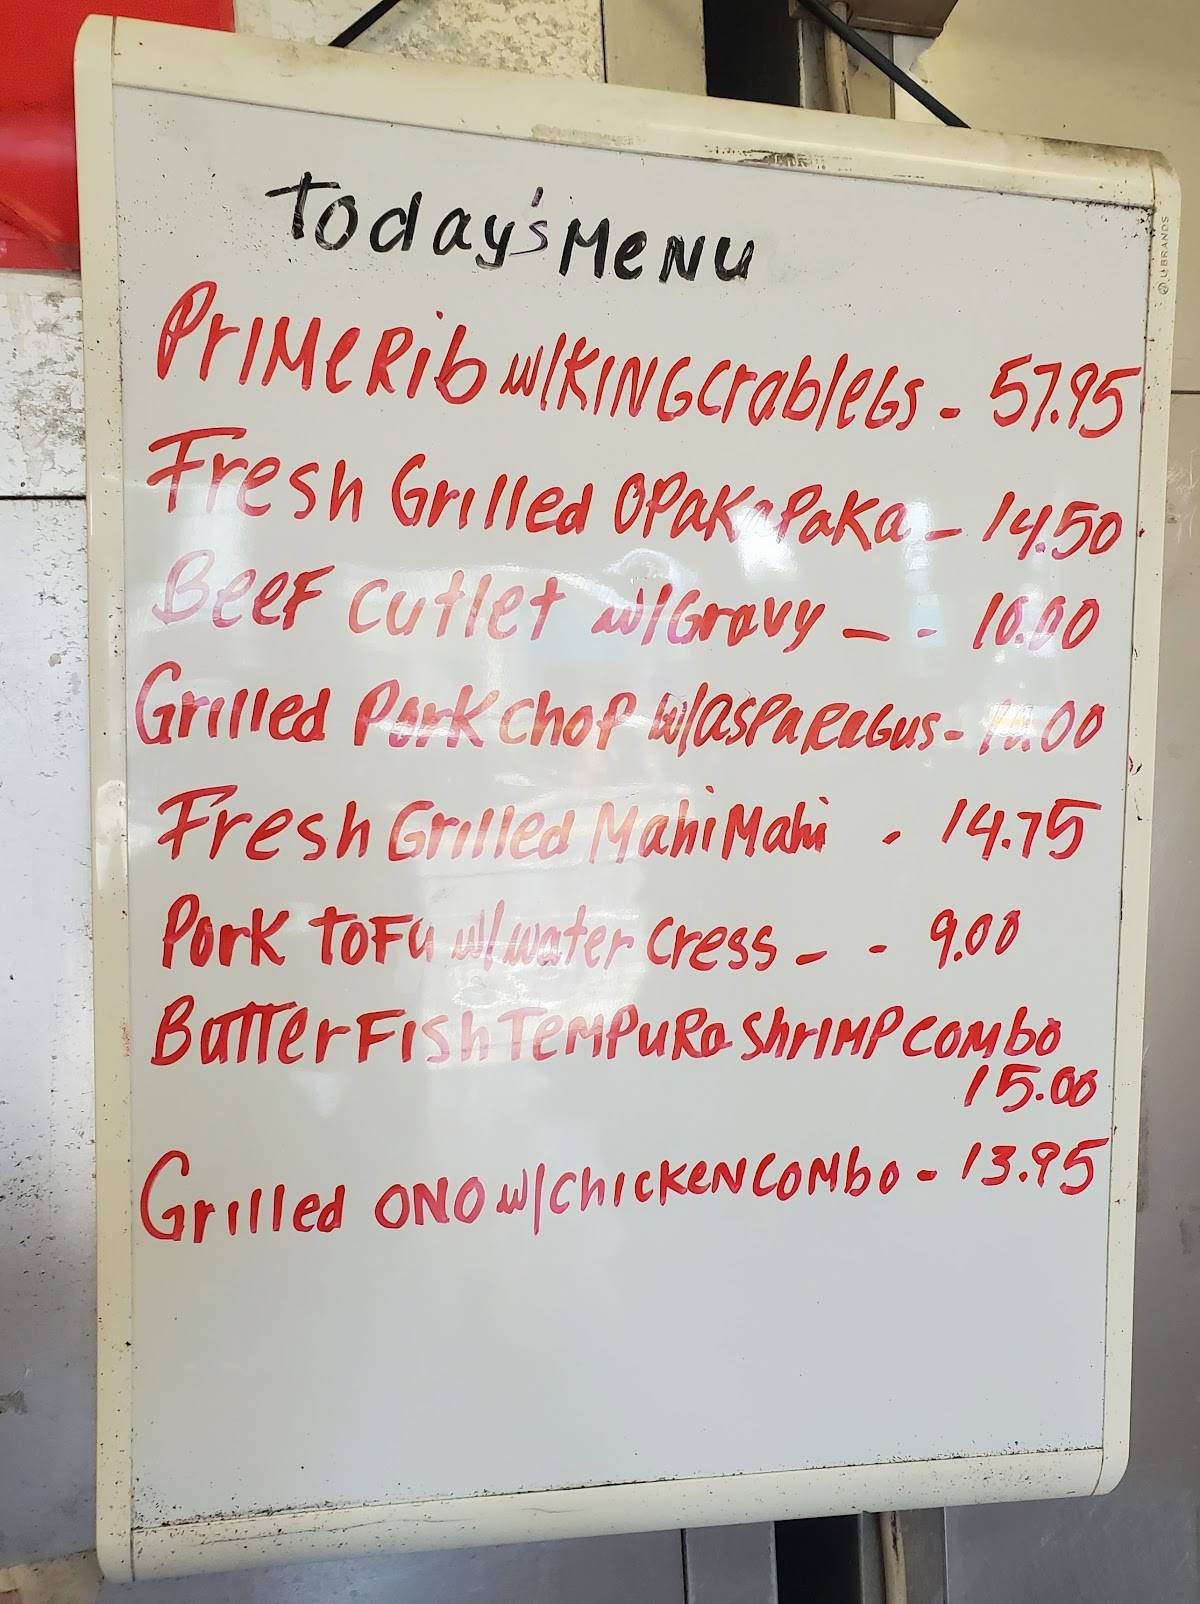 Today's Menu
Prime Rib w/King Crab legs - 57.95
Fresh Grilled Opakapaka - 14.50
Beef Cutlet w/Gravy - - 10.00
Grilled Pork Chop w/asparagus -
Fresh Grilled Mahi Mahi - 14.75
Pork Tofu w/water cress - - 9.00
Butter Fish Tempura Shrimp combo
15.00
Grilled ONO w/chicken combo - 13.95
U BRANDS